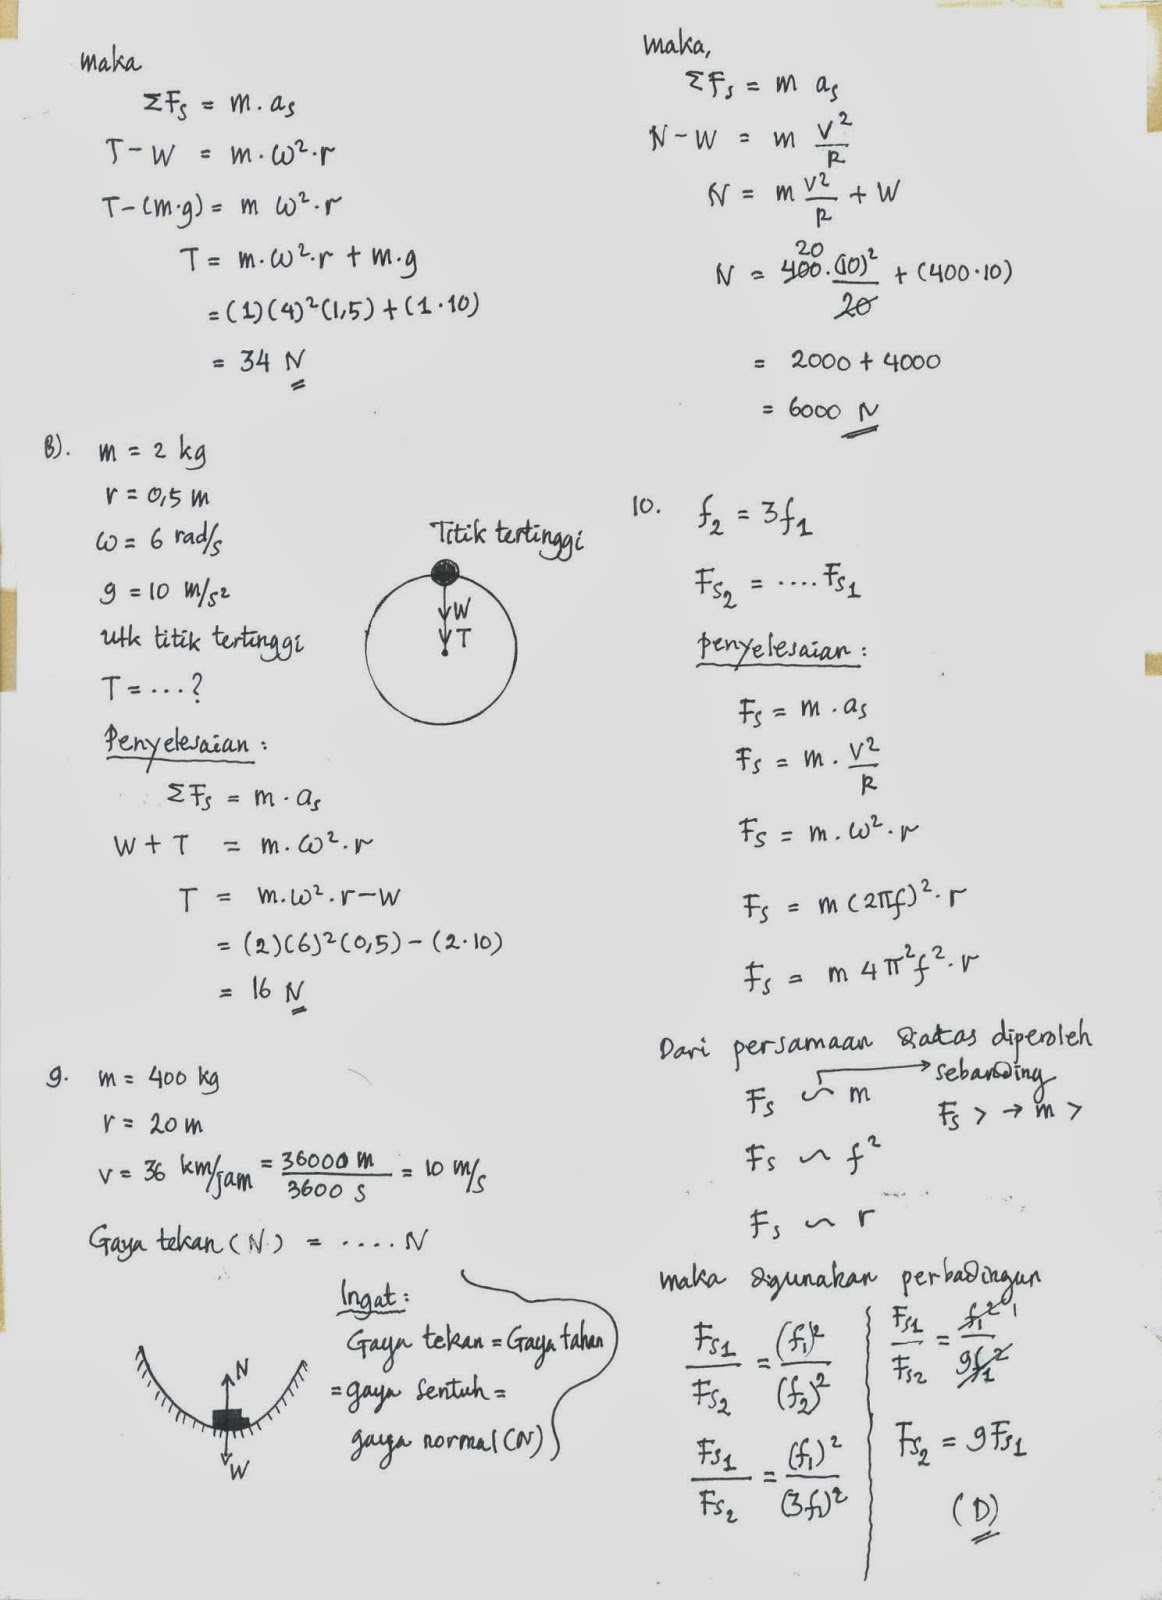 maka
ΣFs = m . as
T - W = m . ω² . r
T - (m·g) = m ω² . r
T = m . ω² . r + m . g
= (1)(4)²(1,5) + (1·10)
= 34 N
8). m = 2 kg
r = 0,5 m
ω = 6 rad/s
g = 10 m/s²
utk titik tertinggi
T = ...?
Titik tertinggi
W
T
Penyelesaian :
ΣFs = m . as
W + T = m . ω² . r
T = m . ω² . r - W
= (2)(6)²(0,5) - (2·10)
= 16 N
9. m = 400 kg
r = 20 m
v = 36 km/jam = 36000 m / 3600 s = 10 m/s
Gaya tekan (N) = .... N
N
W
Ingat :
Gaya tekan = Gaya tahan
= gaya sentuh =
gaya normal (N)
maka,
ΣFs = m as
N - W = m v²/R
N = m v²/R + W
N = 400 . (10)² / 20 + (400·10)
20
= 2000 + 4000
= 6000 N
10. f₂ = 3f₁
Fs₂ = .... Fs₁
Penyelesaian :
Fs = m . as
Fs = m . v²/R
Fs = m . ω² . r
Fs = m (2πf)² . r
Fs = m 4π²f² . r
Dari persamaan diatas diperoleh
Fs ∽ m → sebanding
Fs > → m >
Fs ∽ f²
Fs ∽ r
maka digunakan perbadingan
Fs₁/Fs₂ = (f₁)²/(f₂)²
Fs₁/Fs₂ = (f₁)²/(3f₁)²
Fs₁/Fs₂ = f₁² 1/9f₁²
Fs₂ = 9Fs₁
(D)